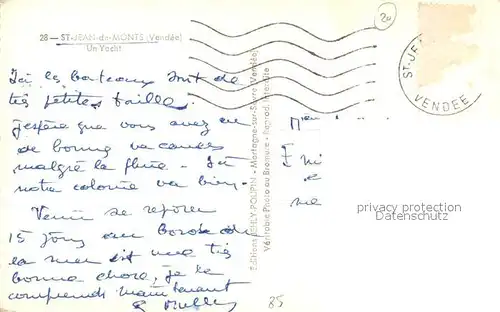 28 — ST-JEAN-de-MONTS (Vendée)
Un Yacht
20
ST-JE
VENDÉE
Ici les bateaux sont de
très petites taille.
j'espère que vous avez eu
de bonnes vacances
malgré la pluie. Ici
notre colonie va bien.
Venir se reposer
15 jours au bord de
la mer est une très
bonne chose, je le
comprends maintenant
Editions JEHLY-POUPIN - Mortagne-sur-Sèvre (Vendée)
Véritable Photo au Bromure - Reprod. interdite
85
privacy protection
Datenschutz